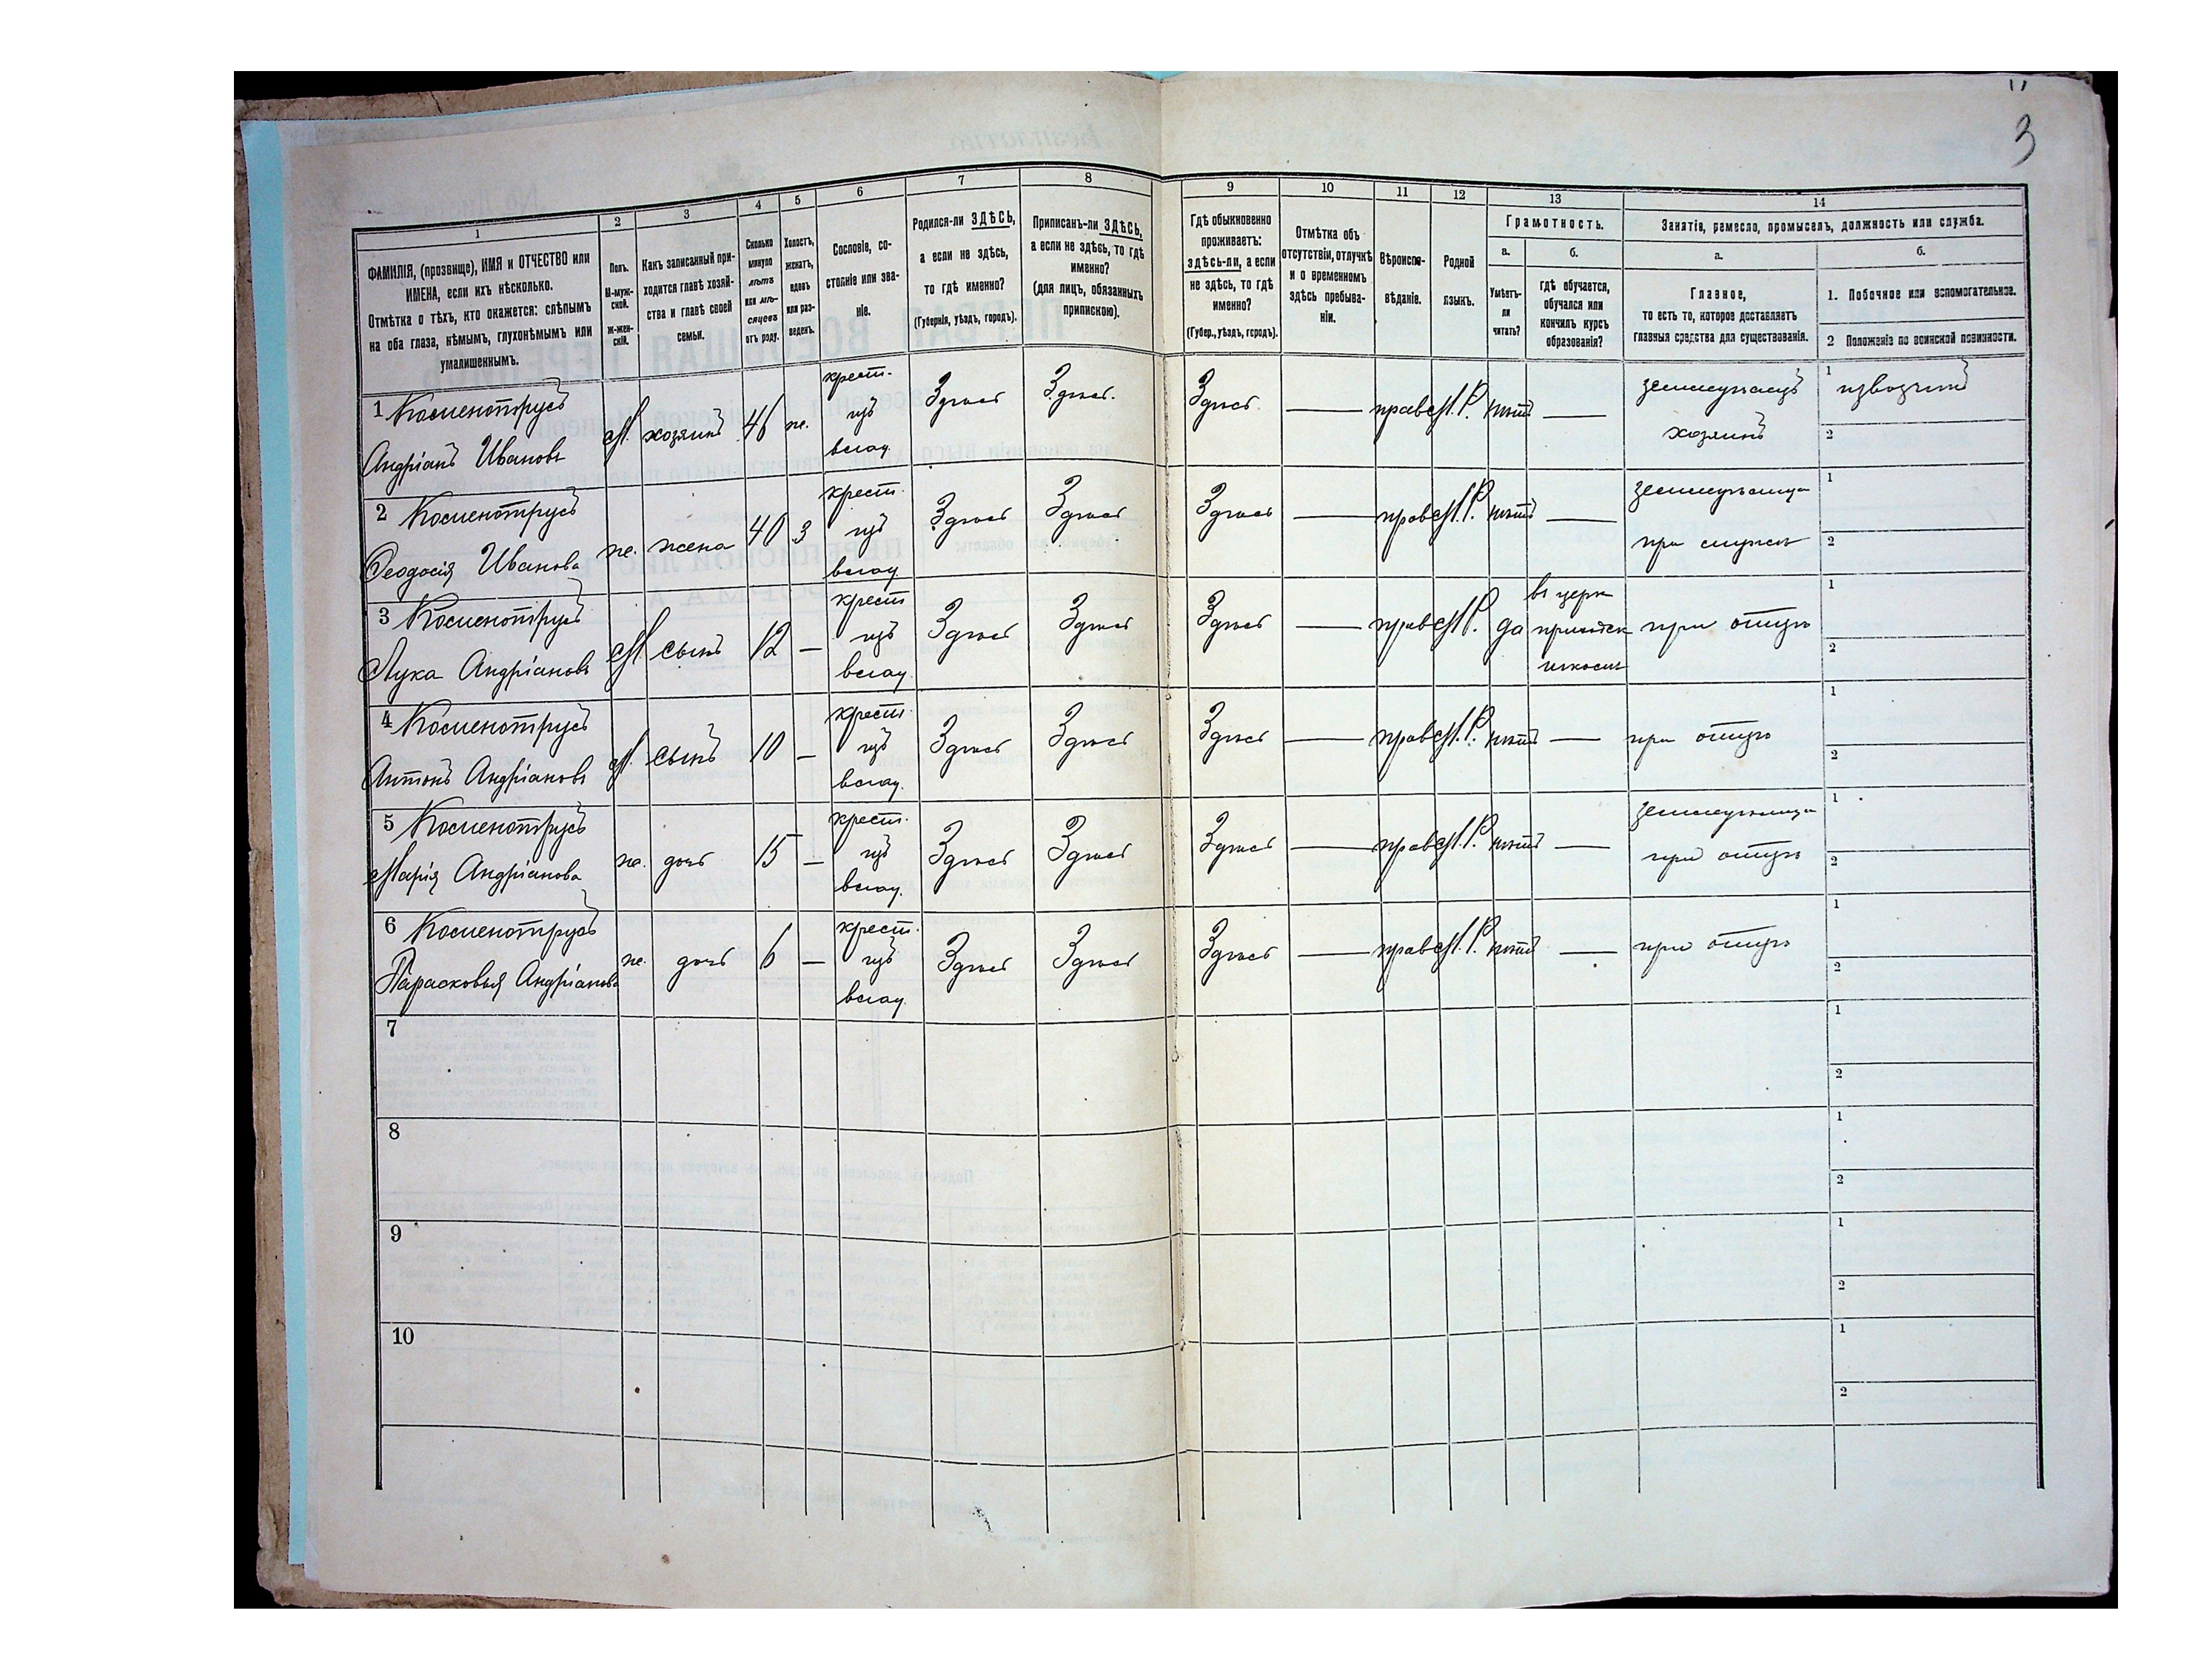 3
1
ФАМИЛІЯ, (прозвище), ИМЯ и ОТЧЕСТВО или
ИМЕНА, если ихъ нѣсколько.
Отмѣтка о тѣхъ, кто окажется: слѣпымъ
на оба глаза, нѣмымъ, глухонѣмымъ или
умалишеннымъ.
2
Полъ.
М-муж-
ской.
Ж-жен-
скій.
3
Какъ записанный при-
ходится главѣ хозяй-
ства и главѣ своей
семьи.
4
Сколько
минуло
лѣтъ
или мѣ-
сяцевъ
отъ роду.
5
Холостъ,
женатъ,
вдовъ
или раз-
веденъ.
6
Сословіе, со-
стояніе или зва-
ніе.
7
Родился-ли ЗДѢСЬ,
а если не здѣсь,
то гдѣ именно?
(Губернія, уѣздъ, городъ).
8
Приписанъ-ли ЗДѢСЬ,
а если не здѣсь, то гдѣ
именно?
(для лицъ, обязанныхъ
припискою).
9
Гдѣ обыкновенно
проживаетъ:
здѣсь-ли, а если
не здѣсь, то гдѣ
именно?
(Губер., уѣздъ, городъ).
10
Отмѣтка объ
отсутствіи, отлучкѣ
и о временномъ
здѣсь пребыва-
ніи.
11
Вѣроиспо-
вѣданіе.
12
Родной
языкъ.
13
Грамотность.
а.
Умѣетъ-
ли
читать?
б.
гдѣ обучается,
обучался или
кончилъ курсъ
образованія?
14
Занятіе, ремесло, промыселъ, должность или служба.
а.
Главное,
то есть то, которое доставляетъ
главныя средства для существованія.
б.
1. Побочное или вспомогательное.
2 Положеніе по воинской повинности.
1
Андріанъ Ивановъ
М. хозяинъ 46 ж.
крест.
изъ
влад.
Здѣсь Здѣсь. Здѣсь — прав М.Р. нѣтъ —
земледѣлецъ
хозяинъ
1 извозчикъ
2
2
Ѳеодосія Иванова
ж. жена 40 З
крест.
изъ
влад.
Здѣсь Здѣсь Здѣсь — прав М.Р. нѣтъ —
земледѣлица
при мужѣ
1
2
3
Лука Андріановъ
М. сынъ 12 —
крест
изъ
влад.
Здѣсь Здѣсь Здѣсь — прав М.Р. да
въ церк
приходск
школѣ
при отцѣ
1
2
4
Антонъ Андріановъ
М. сынъ 10 —
крест.
изъ
влад.
Здѣсь Здѣсь Здѣсь — прав М.Р. нѣтъ —
при отцѣ
1
2
5
Марія Андріанова
ж. дочь 15 —
крест.
изъ
влад.
Здѣсь Здѣсь Здѣсь — прав М.Р. нѣтъ —
земледѣлица
при отцѣ
1
2
6
Парасковья Андріанова
ж. дочь 6 —
крест.
изъ
влад.
Здѣсь Здѣсь Здѣсь — прав М.Р. нѣтъ —
при отцѣ
1
2
7
1
2
8
1
2
9
1
2
10
1
2